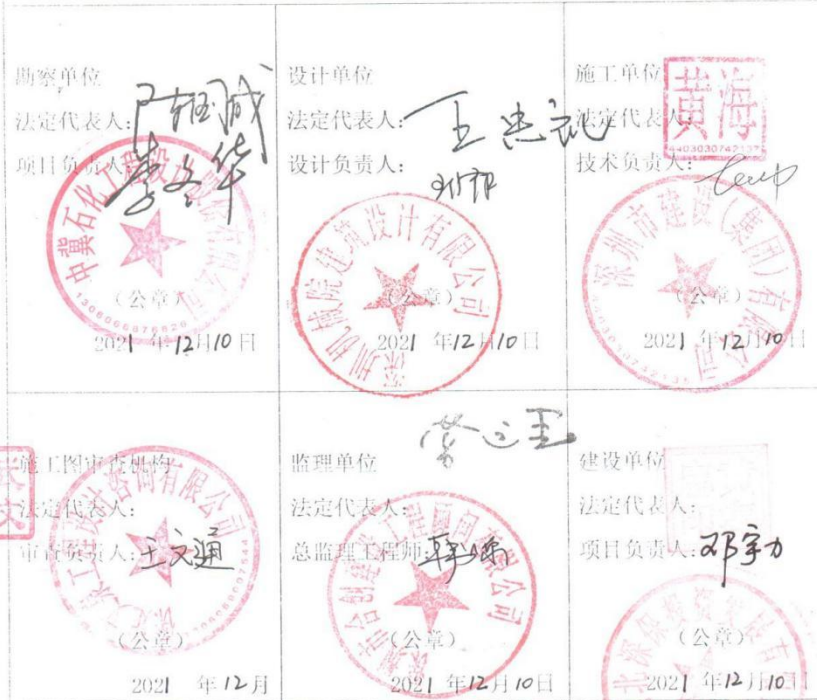 勘察单位
法定代表人:
项目负责人:
李冬华
中冀石化工程设计有限公司
1306066876620
(公章)
2021 年12月10日
设计单位
法定代表人: 王忠礼
设计负责人:
深圳机械院建筑设计有限公司
(公章)
2021 年12月10日
施工单位
黄海
法定代表人:
技术负责人:
深圳市建设(集团)有限公司
(公章)
2021 年12月10日
施工图审查机构
法定代表人:
审查负责人: 王文通
(公章)
2021 年12月
监理单位
法定代表人:
总监理工程师:
2021 年12月10日
建设单位
法定代表人:
项目负责人: 邓宇力
(公章)
2021 年12月10日